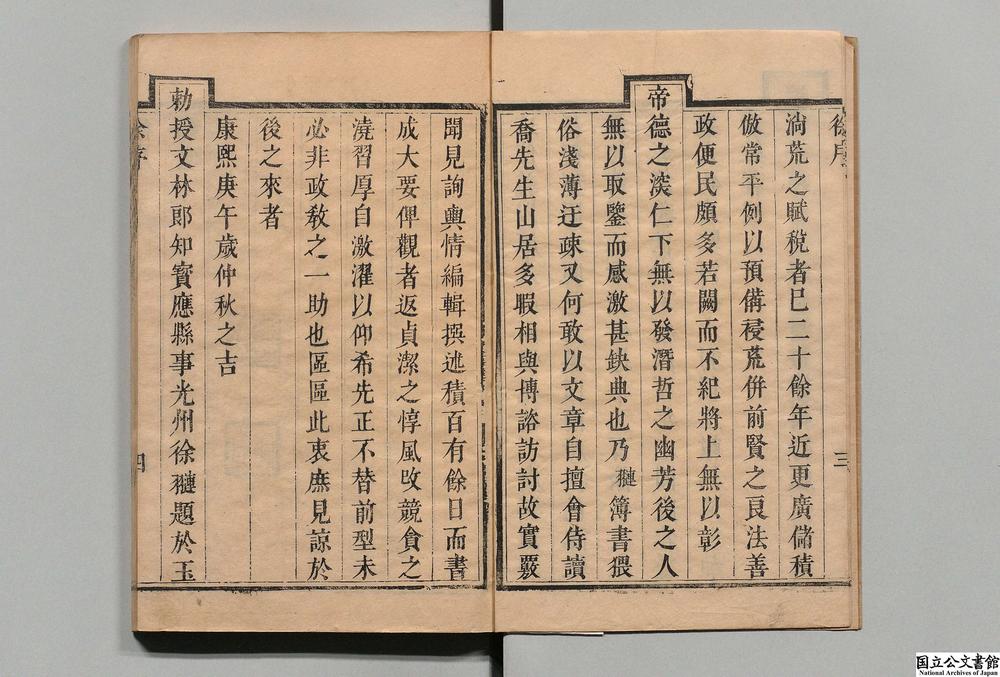 淌荒之賦稅者已二十餘年近更廣儲積
倣常平例以預備祲荒併前賢之良法善
政便民頗多若闕而不紀將上無以彰
帝德之深仁下無以發潛哲之幽芳後之人
無以取鑒而感激甚缺典也乃𦒋簿書猥
俗淺薄迂疎又何敢以文章自擅會侍讀
喬先生山居多暇相與博諮訪討故實覈
三
聞見詢輿情編輯撰述積百有餘日而書
成大要俾觀者返貞潔之惇風攺競食之
澆習厚自激濯以仰希先正不替前型未
必非政敎之一助也區區此衷庶見諒於
後之來者
康熙庚午歲仲秋之吉
勅授文林郎知寶應縣事光州徐𦒋題於玉
徐序
四
国立公文書館
National Archives of Japan